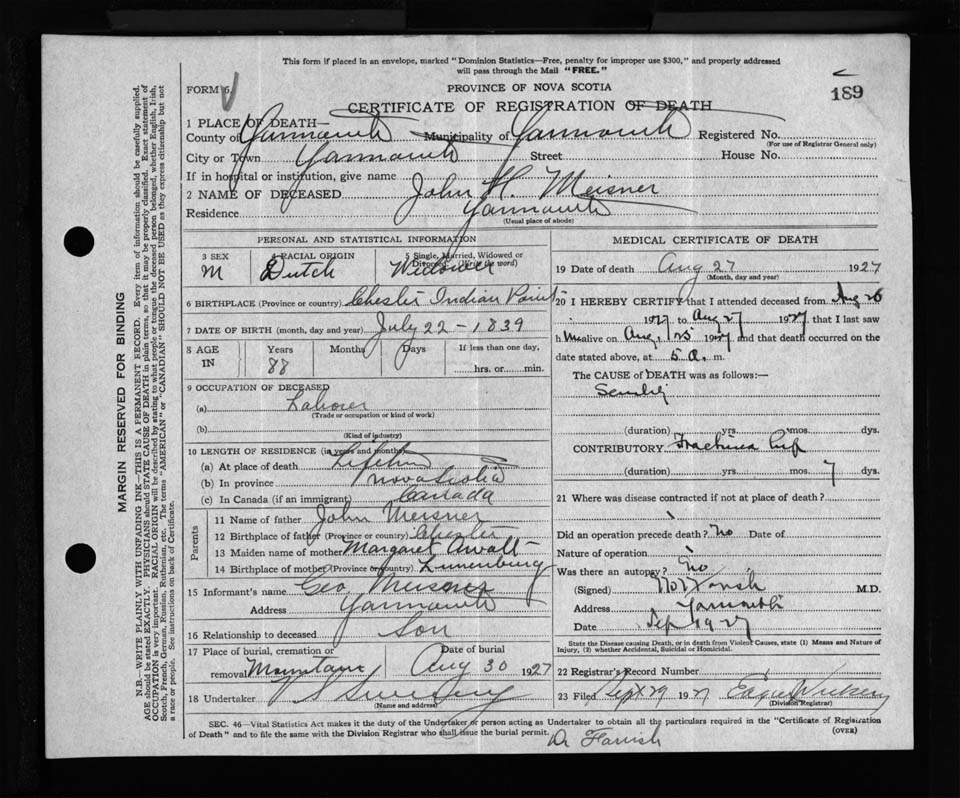 This form if placed in an envelope, marked "Dominion Statistics—Free, penalty for improper use $300," and properly addressed
will pass through the Mail "FREE."
FORM 6.
PROVINCE OF NOVA SCOTIA
189
CERTIFICATE OF REGISTRATION OF DEATH
1 PLACE OF DEATH—
County of Yarmouth Municipality of Yarmouth Registered No.
(For use of Registrar General only)
City or Town Yarmouth Street House No.
If in hospital or institution, give name
2 NAME OF DECEASED John H. Meisner
Residence Yarmouth
(Usual place of abode)
PERSONAL AND STATISTICAL INFORMATION
3 SEX 4 RACIAL ORIGIN 5 Single, Married, Widowed or Divorced (Write the word)
M Dutch Widower
6 BIRTHPLACE (Province or country) Chester Indian Point
7 DATE OF BIRTH (month, day and year) July 22 - 1839
8 AGE IN Years Months Days If less than one day,
88 hrs. or min.
9 OCCUPATION OF DECEASED
(a) Laborer
(Trade or occupation or kind of work)
(b)
(Kind of industry)
10 LENGTH OF RESIDENCE (in years and months)
(a) At place of death Lifetime
(b) In province Nova Scotia
(c) In Canada (if an immigrant) Canada
Parents
11 Name of father John Meisner
12 Birthplace of father (Province or country) Chester
13 Maiden name of mother Margaret Awalt
14 Birthplace of mother (Province or country) Lunenburg
15 Informant's name Geo. Meisner
Address Yarmouth
16 Relationship to deceased Son
17 Place of burial, cremation or Date of burial
removal Mountain Aug 30 1927
18 Undertaker V S Sweeny
(Name and address)
MEDICAL CERTIFICATE OF DEATH
19 Date of death Aug 27 1927
(Month, day and year)
20 I HEREBY CERTIFY that I attended deceased from Aug 26
1927 to Aug 27 1927 that I last saw
h im alive on Aug, 25 1927 and that death occurred on the
date stated above, at 5 a. m.
The CAUSE of DEATH was as follows:—
(duration) yrs. mos. dys.
CONTRIBUTORY Fractured hip
(duration) yrs. mos. 7 dys.
21 Where was disease contracted if not at place of death?
Did an operation precede death? No Date of
Nature of operation
Was there an autopsy? No
(Signed) M.D.
Address Yarmouth
Date Sep 1927
State the Disease causing Death, or in death from Violent Causes, state (1) Means and Nature of
Injury, (2) whether Accidental, Suicidal or Homicidal.
22 Registrar's Record Number
23 Filed Sept 29 1927
(Division Registrar)
SEC. 46—Vital Statistics Act makes it the duty of the Undertaker or person acting as Undertaker to obtain all the particulars required in the "Certificate of Registration
of Death" and to file the same with the Division Registrar who shall issue the burial permit.
(OVER)
Dr Farish
MARGIN RESERVED FOR BINDING
N.B.—WRITE PLAINLY WITH UNFADING INK—THIS IS A PERMANENT RECORD. Every item of information should be carefully supplied.
AGE should be stated EXACTLY. PHYSICIANS should STATE CAUSE OF DEATH in plain terms, so that it may be properly classified. Exact statement of
OCCUPATION is very important. RACIAL ORIGIN will be described by stating to what people or tongue the deceased person belonged, whether English, Irish,
Scotch, French, German, Russian, Ruthenian, etc. The terms "AMERICAN" or "CANADIAN" SHOULD NOT BE USED as they express citizenship but not
a race or people. See instructions on back of Certificate.